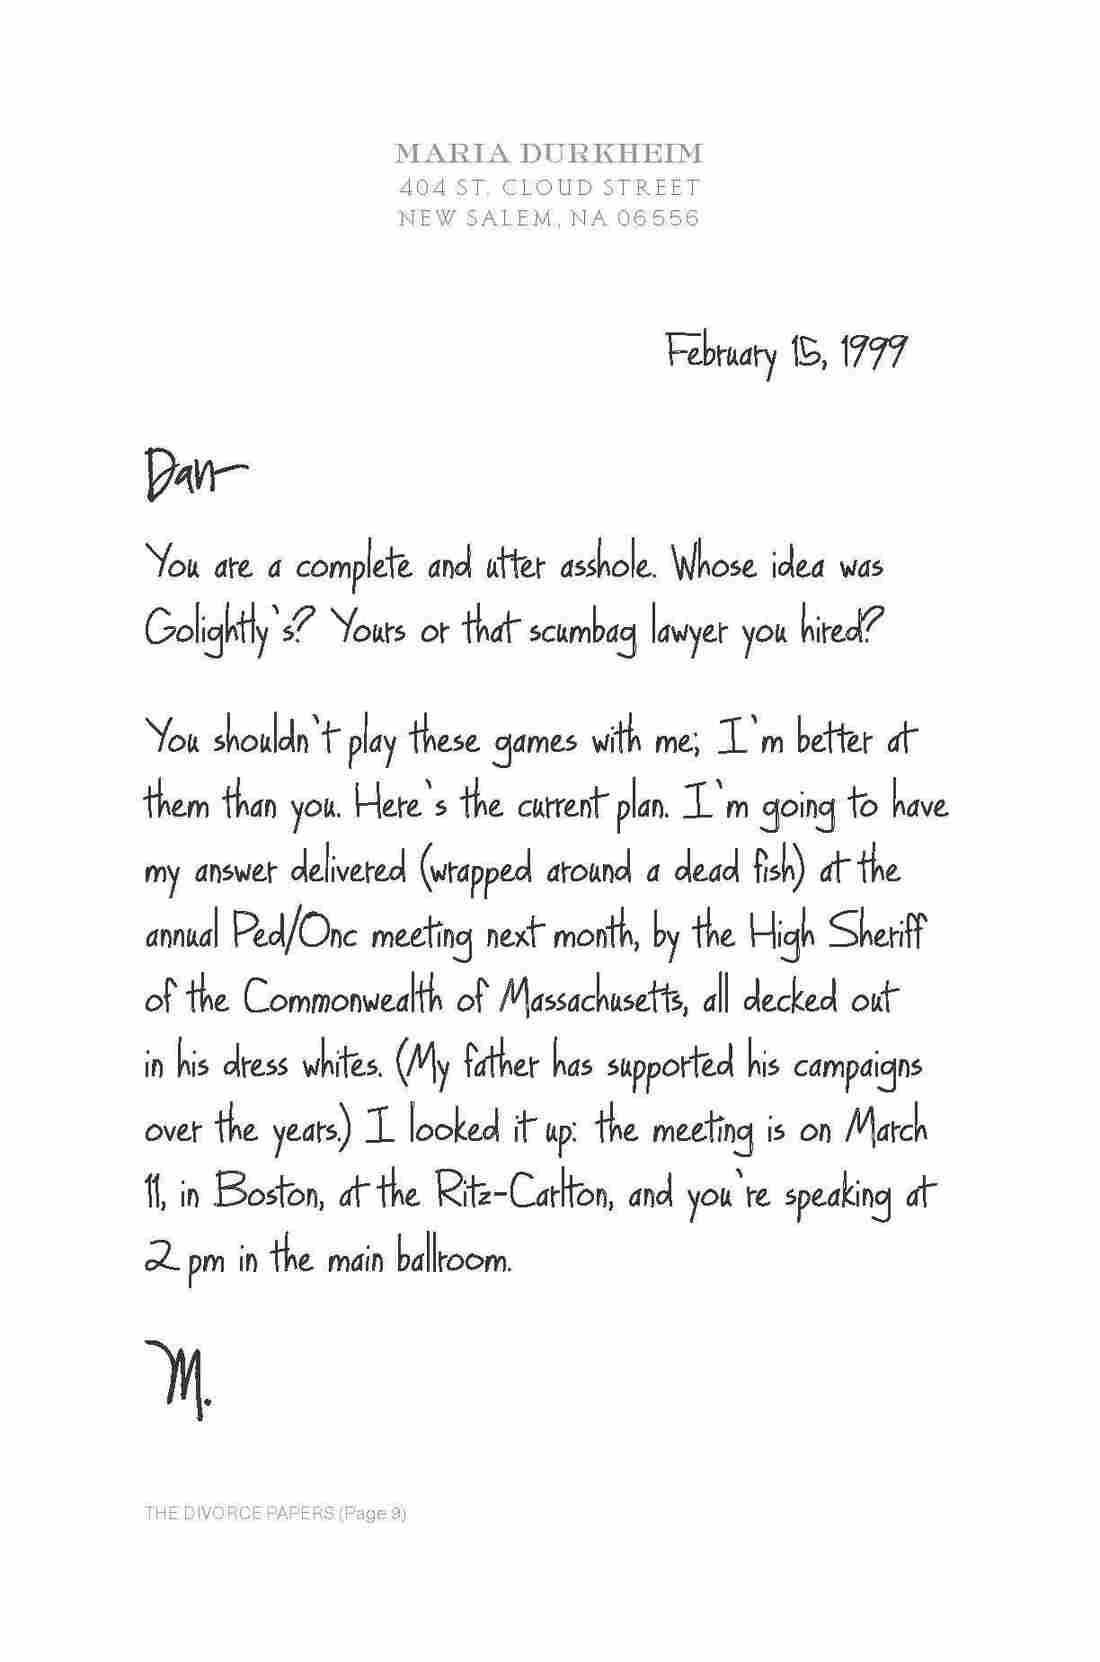 MARIA DURKHEIM
404 ST. CLOUD STREET
NEW SALEM, NA 06556
February 15, 1999
Dan—
You are a complete and utter asshole. Whose idea was
Golightly's? Yours or that scumbag lawyer you hired?
You shouldn't play these games with me; I'm better at
them than you. Here's the current plan. I'm going to have
my answer delivered (wrapped around a dead fish) at the
annual Ped/Onc meeting next month, by the High Sheriff
of the Commonwealth of Massachusetts, all decked out
in his dress whites. (My father has supported his campaigns
over the years.) I looked it up: the meeting is on March
11, in Boston, at the Ritz-Carlton, and you're speaking at
2 pm in the main ballroom.
M.
THE DIVORCE PAPERS (Page 9)